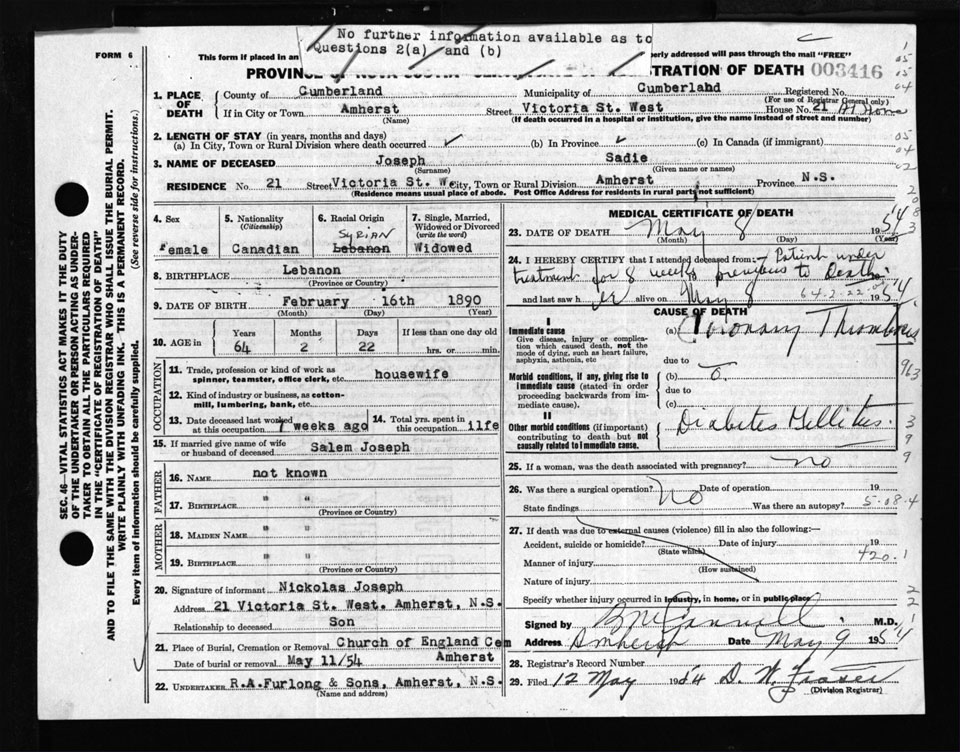 No further information available as to
Questions 2(a) and (b)
FORM 6
This form if placed in an
perly addressed will pass through the mail "FREE"
PROVINCE OF NOVA SCOTIA
REGISTRATION OF DEATH 003416
1. PLACE OF DEATH
County of Cumberland Municipality of Cumberland Registered No.
(For use of Registrar General only)
If in City or Town Amherst Street Victoria St. West House No. 21 At Home
(Name) (If death occurred in a hospital or institution, give the name instead of street and number)
2. LENGTH OF STAY (in years, months and days)
(a) In City, Town or Rural Division where death occurred (b) In Province (c) In Canada (if immigrant)
3. NAME OF DECEASED Joseph Sadie
(Surname) (Given name or names)
RESIDENCE No. 21 Street Victoria St. W. City, Town or Rural Division Amherst Province N.S.
(Residence means usual place of abode. Post Office Address for residents in rural parts not sufficient)
4. Sex
Female
5. Nationality
(Citizenship)
Canadian
6. Racial Origin
SYRIAN
Lebanon
7. Single, Married, Widowed or Divorced
(write the word)
Widowed
8. BIRTHPLACE Lebanon
(Province or Country)
9. DATE OF BIRTH February 16th 1890
(Month) (Day) (Year)
10. AGE in
Years Months Days If less than one day old
64 2 22 hrs. or min.
OCCUPATION
11. Trade, profession or kind of work as
spinner, teamster, office clerk, etc. housewife
12. Kind of industry or business, as cotton-
mill, lumbering, bank, etc.
13. Date deceased last worked
at this occupation 7 weeks ago
14. Total yrs. spent in
this occupation life
15. If married give name of wife
or husband of deceased Salem Joseph
FATHER
16. NAME not known
17. BIRTHPLACE " "
(Province or Country)
MOTHER
18. MAIDEN NAME " "
19. BIRTHPLACE " "
(Province or Country)
20. Signature of informant Nickolas Joseph
Address 21 Victoria St. West. Amherst, N.S.
Relationship to deceased Son
21. Place of Burial, Cremation or Removal Church of England Cem
Amherst
Date of burial or removal May 11/54
22. UNDERTAKER R.A.Furlong & Sons, Amherst, N.S.
(Name and address)
MEDICAL CERTIFICATE OF DEATH
23. DATE OF DEATH May 8 1954
(Month) (Day) (Year)
24. I HEREBY CERTIFY that I attended deceased from:— Patient under
treatment for 8 weeks previous to Death
and last saw her alive on May 8 1954
64.2.22.
CAUSE OF DEATH
I
Immediate cause
Give disease, injury or complica-
tion which caused death, not the
mode of dying, such as heart failure,
asphyxia, asthenia, etc
(a) Coronary Thrombosis
due to
Morbid conditions, if any, giving rise to
immediate cause (stated in order
proceeding backwards from im-
mediate cause).
(b)
due to
(c)
II
Other morbid conditions (if important)
contributing to death but not
causally related to immediate cause.
Diabetes Mellitus.
25. If a woman, was the death associated with pregnancy? no
26. Was there a surgical operation? No Date of operation 19
State findings Was there an autopsy?
5.08.4
27. If death was due to external causes (violence) fill in also the following:—
Accident, suicide or homicide? Date of injury 19
(State which)
420.1
Manner of injury
(How sustained)
Nature of injury
Specify whether injury occurred in industry, in home, or in public place
Signed by M.D.
Address Amherst Date May 9 1954
28. Registrar's Record Number
29. Filed 12 May 1954 D. W. Fraser
(Division Registrar)
SEC. 46—VITAL STATISTICS ACT MAKES IT THE DUTY
OF THE UNDERTAKER OR PERSON ACTING AS UNDER-
TAKER TO OBTAIN ALL THE PARTICULARS REQUIRED
IN THE "CERTIFICATE OF REGISTRATION OF DEATH"
AND TO FILE THE SAME WITH THE DIVISION REGISTRAR WHO SHALL ISSUE THE BURIAL PERMIT.
WRITE PLAINLY WITH UNFADING INK. THIS IS A PERMANENT RECORD.
Every item of information should be carefully supplied. (See reverse side for instructions.)